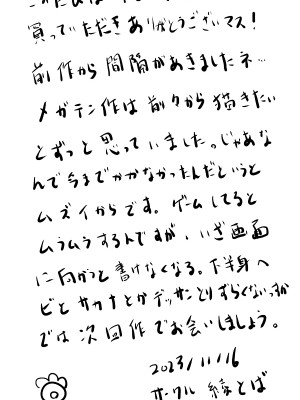 買っていただきありがとうございマス!
前作から間隔があきましたネ…
メガテン作は前々から描きたい
とずっと思っていました。じゃあな
んで今までかかなかったんだというと
ムズイからです。ゲームしてると
ムラムラするんですが、いざ画面
に向かうと書けなくなる。下半身へ
ビとサカナとかデッサンとりずらくないっすか
では次回作でお会いしましょう。
2023/11/16
サークル 綾とば